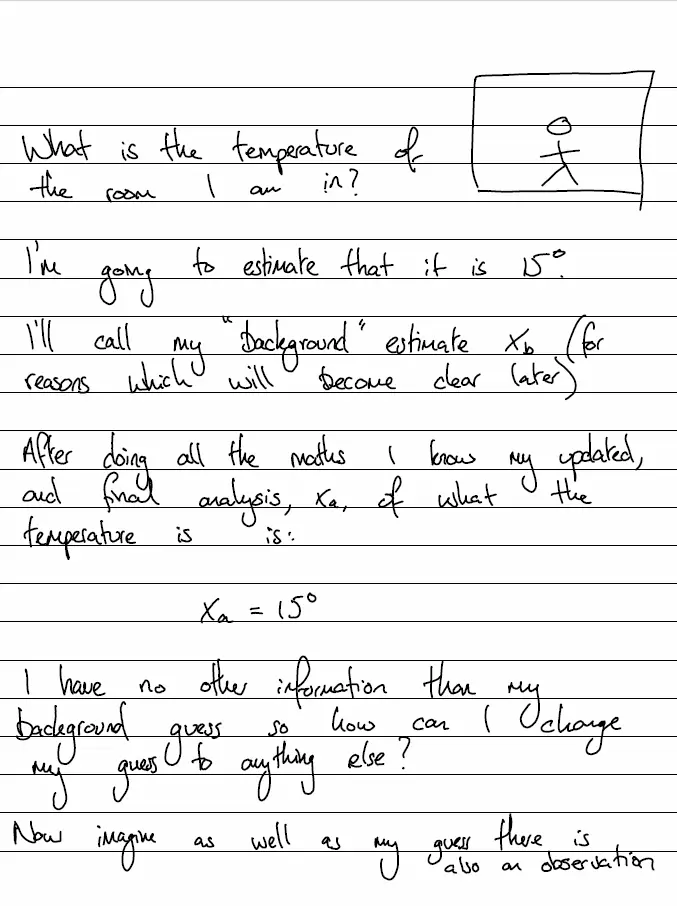 What is the temperature of
the room I am in?
I'm going to estimate that it is 15°.
I'll call my "background" estimate x_b (for
reasons which will become clear later)
After doing all the maths I know my updated,
and final analysis, x_a, of what the
temperature is is:
x_a = 15°
I have no other information than my
background guess so how can I change
my guess to anything else?
Now imagine as well as my guess there is
also an observation